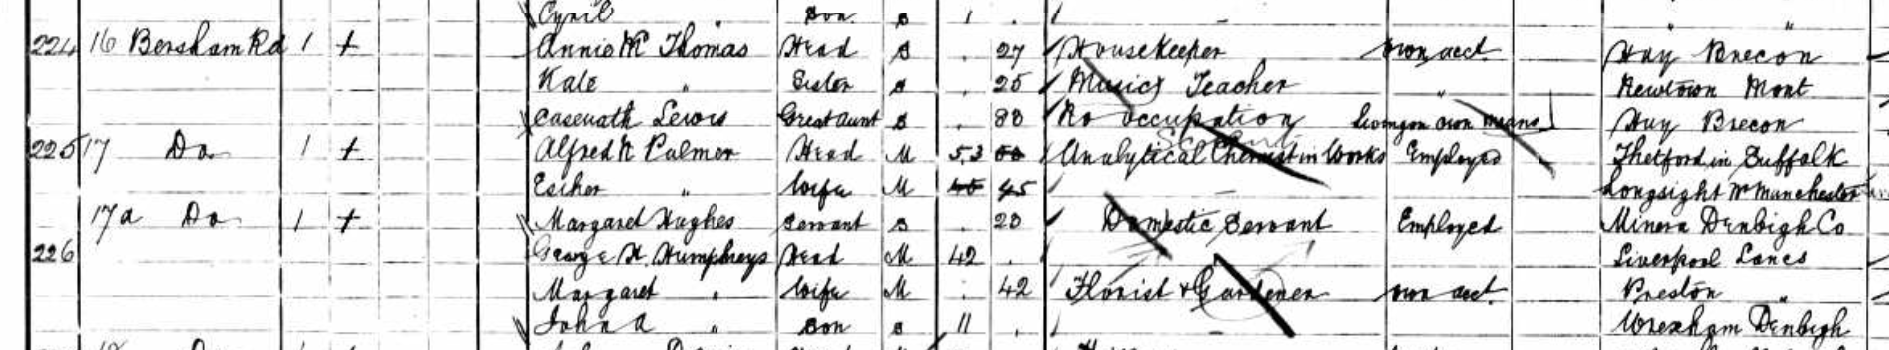 Cyril " Son S 1
224 16 Bersham Rd 1 + Annie M Thomas Head S 27 Housekeeper own acct. Hay Brecon
Kate " Sister S 25 Music Teacher " Newtown Mont
Casenath Lewis Great Aunt S 88 No occupation living on own means Hay Brecon
225 17 Do 1 + Alfred N Palmer Head M 53 Analytical Chemist in Works Employed Thetford in Suffolk
Esther " Wife M 45 Longsight Nr Manchester
17a Do 1 + Margaret Hughes Servant S 23 Domestic Servant Employed Minera Denbigh Co
226 George H. Humphreys Head M 42 Liverpool Lancs
Margaret " Wife M 42 Florist & Gardener own acct. Preston "
John A " Son S 11 Wrexham Denbigh